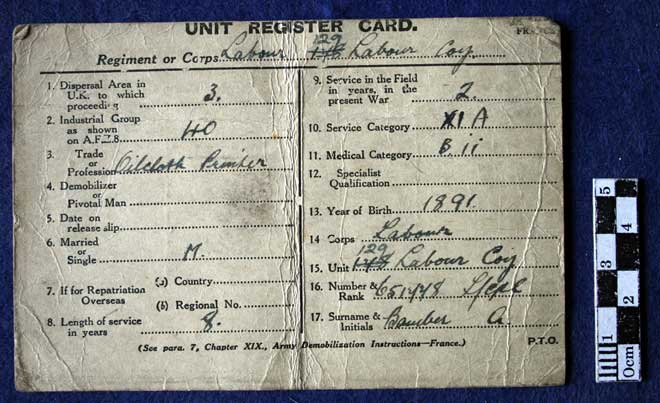 UNIT REGISTER CARD.
FRANCE
Regiment or Corps Labour 129 148 Labour Coy
1. Dispersal Area in
U.K. to which
proceeding 3.
2. Industrial Group
as shown
on A.F.Z.8. 40
3. Trade
or
Profession Oilcloth Printer
4. Demobilizer
or
Pivotal Man
5. Date on
release slip
6. Married
or
Single M.
7. If for Repatriation
Overseas
(a) Country
(b) Regional No.
8. Length of service
in years 8.
9. Service in the Field
in years, in the
present War 2
10. Service Category XI A
11. Medical Category B ii
12. Specialist
Qualification
13. Year of Birth 1891.
14 Corps Labour
15. Unit 129 148 Labour Coy
16. Number &
Rank 651448 L/Cpl
17. Surname &
Initials Bamber A.
(See para. 7, Chapter XIX., Army Demobilization Instructions—France.)
P.T.O.
0cm 1 2 3 4 5